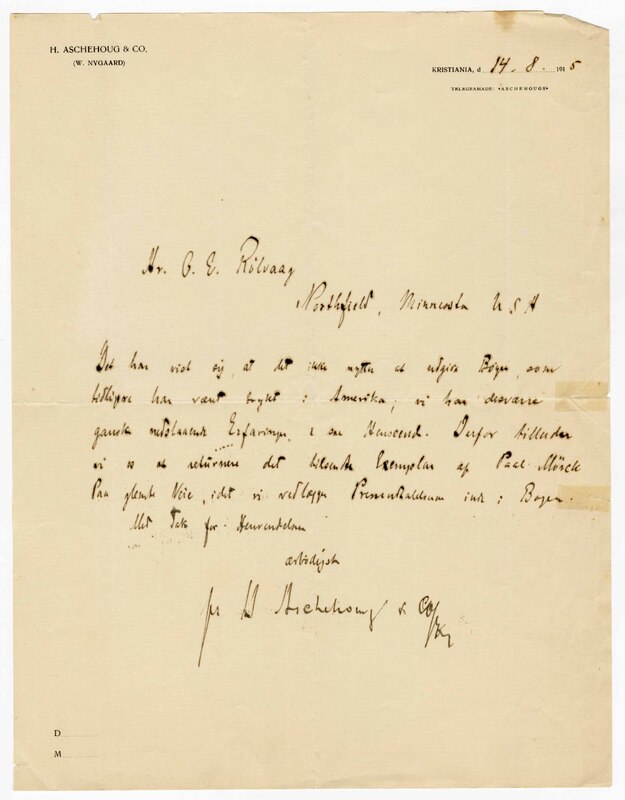 H. ASCHEHOUG & CO.
(W. NYGAARD)
KRISTIANIA, d. 14. 8. 1915
TELEGRAMADR: «ASCHEHOUGS»
Hr. O. E. Rölvaag
Northfield, Minnesota U S A
Det har vist sig, at det ikke nytter at udgive Bøger, som
tidligere har vært trykt i Amerika; vi har desværre
ganske nedslaaende Erfaringer i saa Henseende. Derfor tillader
vi os at returnere det tilsendte Exemplar af Paal Mörck
Paa glemte Veie, idet vi vedlægger inde i Bogen.
Med Tak for Henvendelsen
ærbødigst
pr H Aschehoug & Co
D
M